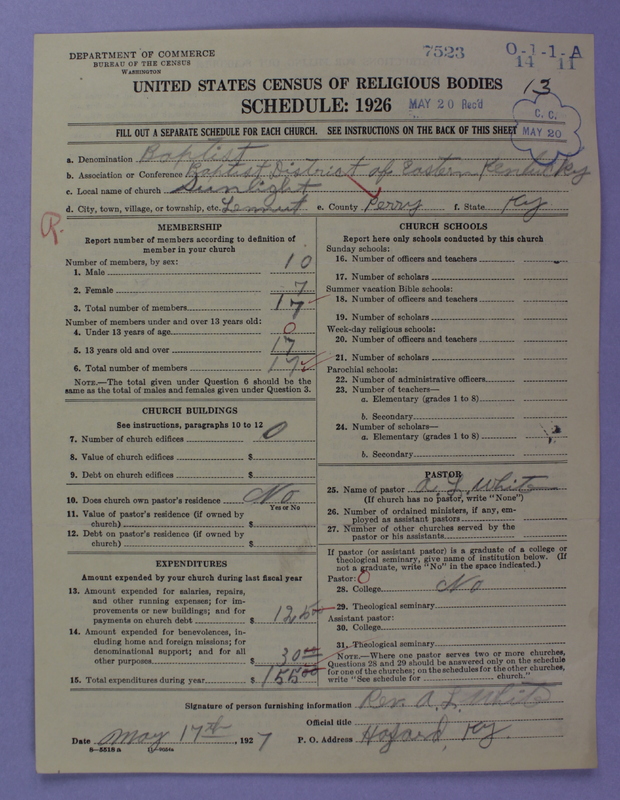 DEPARTMENT OF COMMERCE
BUREAU OF THE CENSUS
WASHINGTON
7523
O-1-1-A
14 11
UNITED STATES CENSUS OF RELIGIOUS BODIES
13
SCHEDULE: 1926
MAY 20 Rec'd
C. C.
MAY 20
FILL OUT A SEPARATE SCHEDULE FOR EACH CHURCH. SEE INSTRUCTIONS ON THE BACK OF THIS SHEET
a. Denomination Baptist
b. Association or Conference Baptist District of Eastern Kentucky
c. Local name of church Sunlight
d. City, town, village, or township, etc. Lennut e. County Perry f. State Ky
R.
MEMBERSHIP
Report number of members according to definition of
member in your church
Number of members, by sex:
1. Male 10
2. Female 7
3. Total number of members 17
Number of members under and over 13 years old:
4. Under 13 years of age 0
5. 13 years old and over 17
6. Total number of members 17
NOTE.—The total given under Question 6 should be the
same as the total of males and females given under Question 3.
CHURCH BUILDINGS
See instructions, paragraphs 10 to 12
7. Number of church edifices 0
8. Value of church edifices $
9. Debt on church edifices $
10. Does church own pastor's residence No
Yes or No
11. Value of pastor's residence (if owned by
church) $
12. Debt on pastor's residence (if owned by
church) $
EXPENDITURES
Amount expended by your church during last fiscal year
13. Amount expended for salaries, repairs,
and other running expenses; for im-
provements or new buildings; and for
payments on church debt $ 125 00
14. Amount expended for benevolences, in-
cluding home and foreign missions; for
denominational support; and for all
other purposes $ 30 00
15. Total expenditures during year $ 155 00
CHURCH SCHOOLS
Report here only schools conducted by this church
Sunday schools:
16. Number of officers and teachers
17. Number of scholars
Summer vacation Bible schools:
18. Number of officers and teachers
19. Number of scholars
Week-day religious schools:
20. Number of officers and teachers
21. Number of scholars
Parochial schools:
22. Number of administrative officers
23. Number of teachers—
a. Elementary (grades 1 to 8)
b. Secondary
24. Number of scholars—
a. Elementary (grades 1 to 8)
b. Secondary
PASTOR
25. Name of pastor A. L. White
(If church has no pastor, write "None")
26. Number of ordained ministers, if any, em-
ployed as assistant pastors
27. Number of other churches served by the
pastor or his assistants
If pastor (or assistant pastor) is a graduate of a college or
theological seminary, give name of institution below. (If
not a graduate, write "No" in the space indicated.)
Pastor: 0
28. College No
29. Theological seminary
Assistant pastor:
30. College
31. Theological seminary
NOTE.—Where one pastor serves two or more churches,
Questions 28 and 29 should be answered only on the schedule
for one of the churches; on the schedules for the other churches,
write "See schedule for church."
Signature of person furnishing information Rev. A. L. White
Official title
Date May 17th, 1927 P. O. Address Hazard, Ky.
8-5518 a